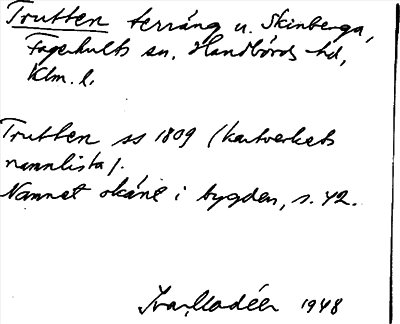 Trutten terräng u. Skinberga,
Fagerhults sn, Handbörds hd,
Klm. l.
Trutten ss 1809 (kartverkets
namnlista).
Namnet okänt i bygden, s. 42.
Ivar Modéer 1948